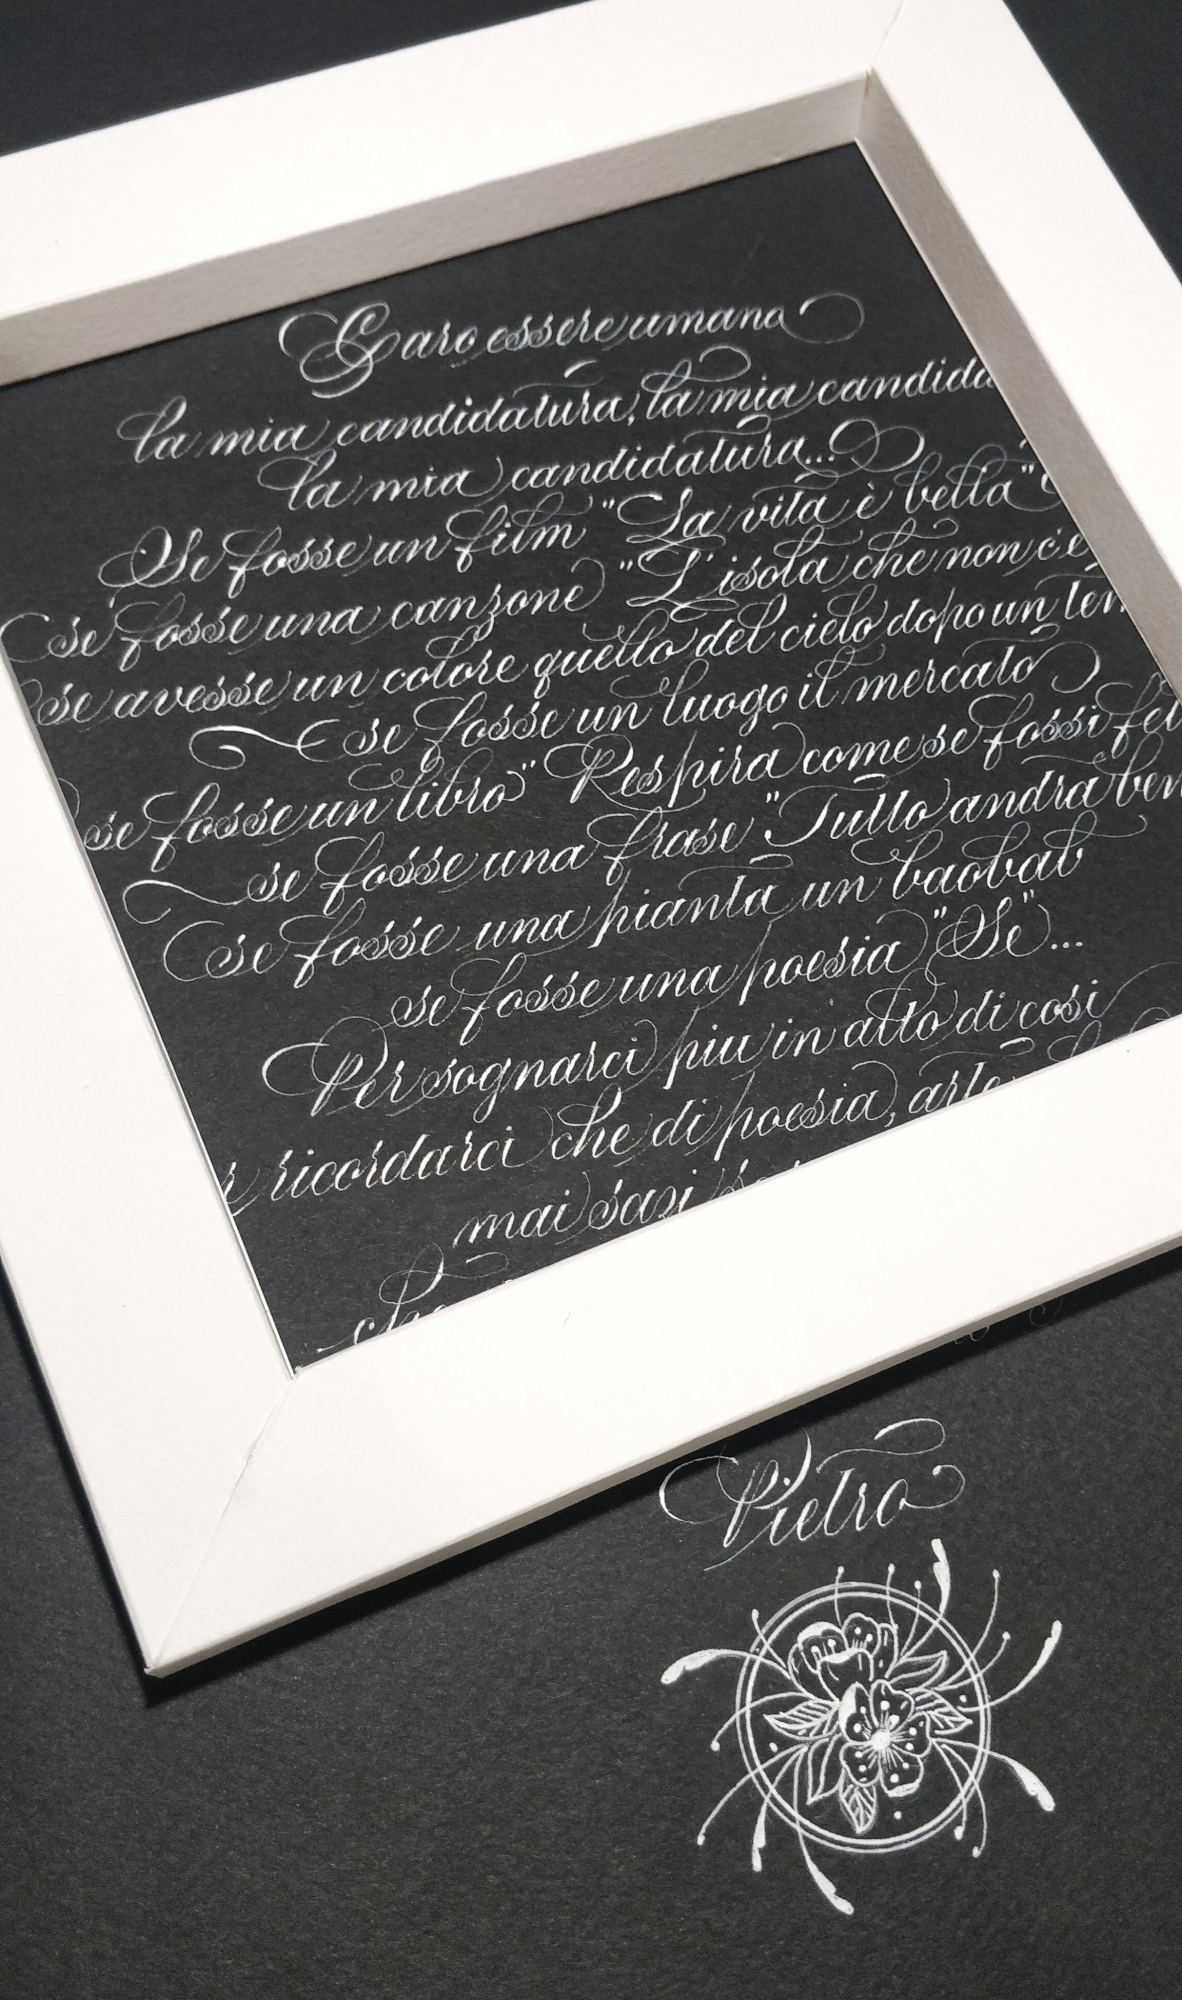 Caro essere umano
la mia candidatura, la mia candida
la mia candidatura...
Se fosse un film "La vita è bella"
se fosse una canzone "L'isola che non c'è
se avesse un colore quello del cielo dopo un tem
se fosse un luogo il mercato
se fosse un libro "Respira come se fossi fel
se fosse una frase "Tutto andrà ben
se fosse una pianta un baobab
se fosse una poesia "Se"...
Per sognarci piu in alto di cosi
r ricordarci che di poesia, arte
mai sazi
Pietro